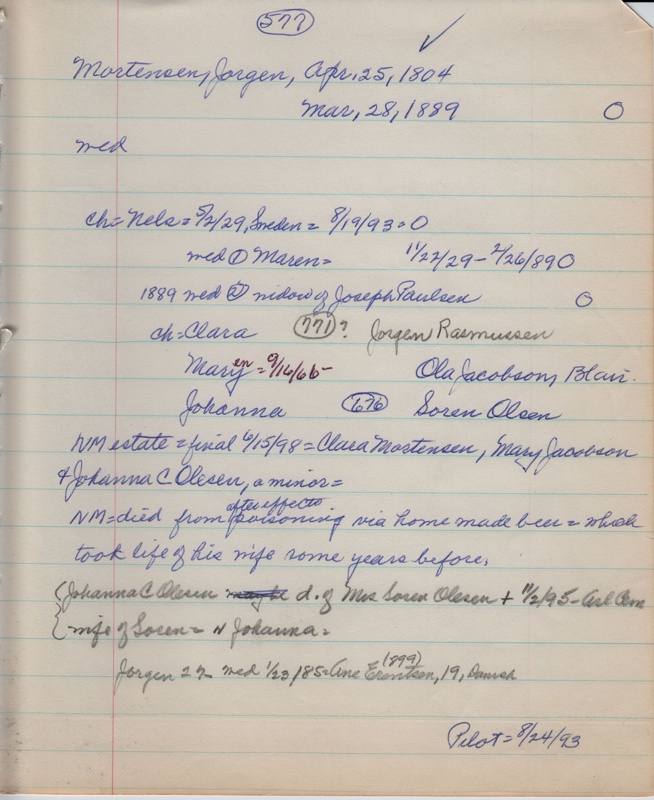 577
Mortensen, Jorgen, Apr. 25, 1804
Mar, 28, 1889 O
wed
ch = Nels = 5/2/29, Sweden = 8/19/93 = O
wed ① Maren = 11/22/29 - 2/26/89 O
1889 wed ② widow of Joseph Paulsen O
ch = Clara 771? Jorgen Rasmussen
Mary en = 9/16/65 Ola Jacobson, Blair.
Johanna 676 Soren Olsen
NM estate = final 6/15/98 = Clara Mortensen, Mary Jacobson
+ Johanna C Olesen, a minor =
after effects
NM = died from poisoning via home made beer = which
took life of his wife some years before.
Johanna C Olesen maybe d. of Mrs Soren Olesen + 11/2/95 - Arl Cem
wife of Soren = N Johanna =
(1899)
Jorgen 27 wed 1/23/85 = Ane Erentsen, 19, Danish
Pilot = 8/24/93